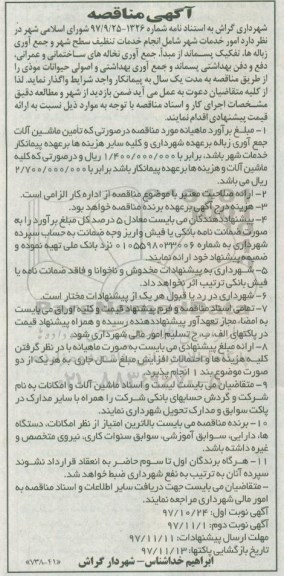 آگهی مناقصه
شهرداری گراش به استناد نامه شماره ۱۳۲۶-۹۷/۹/۲۵ شورای اسلامی شهر در
نظر دارد امور خدمات شهر شامل انجام خدمات تنظیف سطح شهر و جمع آوری
زباله ها، تفکیک پسماند از مبدأ، جمع آوری نخاله های ساختمانی و عمرانی،
دفع و دفن بهداشتی پسماند و جمع آوری بهداشتی و اصولی حیوانات موذی را
از طریق مناقصه به مدت یک سال به پیمانکار واجد شرایط واگذار نماید. لذا
از کلیه متقاضیان دعوت به عمل می آید ضمن بازدید از شهر و مطالعه دقیق
مشخصات اجرای کار و اسناد مناقصه با توجه به موارد ذیل نسبت به ارائه
قیمت پیشنهادی اقدام نمایند.
۱- مبلغ برآورد ماهیانه مورد مناقصه درصورتی که تأمین ماشین آلات
جمع آوری زباله برعهده شهرداری و کلیه سایر هزینه ها برعهده پیمانکار
خدمات شهر باشد، برابر با ۱/۴۰۰/۰۰۰/۰۰۰ ریال و درصورتی که کلیه
ماشین آلات و هزینه ها برعهده پیمانکار باشد برابر با ۲/۷۰۰/۰۰۰/۰۰۰
ریال می باشد.
۲- ارائه صلاحیت معتبر با موضوع مناقصه از اداره کار الزامی است.
۳- هزینه درج آگهی برعهده برنده مناقصه خواهد بود.
۴- پیشنهاددهندگان می بایست معادل ۵ درصد کل مبلغ برآورد را به
صورت ضمانت نامه بانکی یا فیش واریز وجه ضمانت به حساب سپرده
شهرداری به شماره ۰۱۰۵۵۹۸۰۳۳۰۰۶ نزد بانک ملی تهیه نموده و
ضمیمه پیشنهاد خود ارائه نمایند.
۵- شهرداری به پیشنهادات مخدوش و ناخوانا و فاقد ضمانت نامه یا
فیش بانکی ترتیب اثر نخواهد داد.
۶- شهرداری در رد یا قبول هر یک از پیشنهادات مختار است.
۷- تمامی اسناد مناقصه و فرم پیشنهاد قیمت و کلیه اوراق می بایست
به امضا مجاز تعهدآور پیشنهاددهنده رسیده و همراه پیشنهاد قیمت
در پاکتهای الف، ب، ج تسلیم امور مالی شهرداری شود.
۸- ارائه مبلغ پیشنهادی می بایست به صورت ماهیانه با در نظر گرفتن
کلیه هزینه ها و احتمالات افزایش مبلغ سال جاری به هر یک از دو
صورت موضوع بند ۱ انجام پذیرد.
۹- متقاضیان می بایست لیست و اسناد ماشین آلات و امکانات به نام
شرکت و گردش حسابهای بانکی شرکت را همراه با سایر مدارک در
پاکت سوابق و مدارک تحویل شهرداری نمایند.
۱۰- برنده مناقصه می بایست بالاترین امتیاز از نظر امکانات، دستگاه
ها، دارایی، سوابق آموزشی، سوابق سنوات کاری، نیروی متخصص و
غیره داشته باشد.
۱۱- هرگاه برندگان اول تا سوم حاضر به انعقاد قرارداد نشوند
سپرده آنان به ترتیب به نفع شهرداری ضبط خواهد شد.
- متقاضیان می بایست جهت دریافت سایر اطلاعات و اسناد مناقصه به
امور مالی شهرداری مراجعه نمایند.
آگهی نوبت اول: ۹۷/۱۰/۲۴
آگهی نوبت دوم: ۹۷/۱۱/۱
مهلت ارسال پیشنهادات: ۹۷/۱۱/۱۱
تاریخ بازگشایی پاکتها: ۹۷/۱۱/۱۳
ابراهیم خداشناس- شهردار گراش «۷۳۸-۱۱»